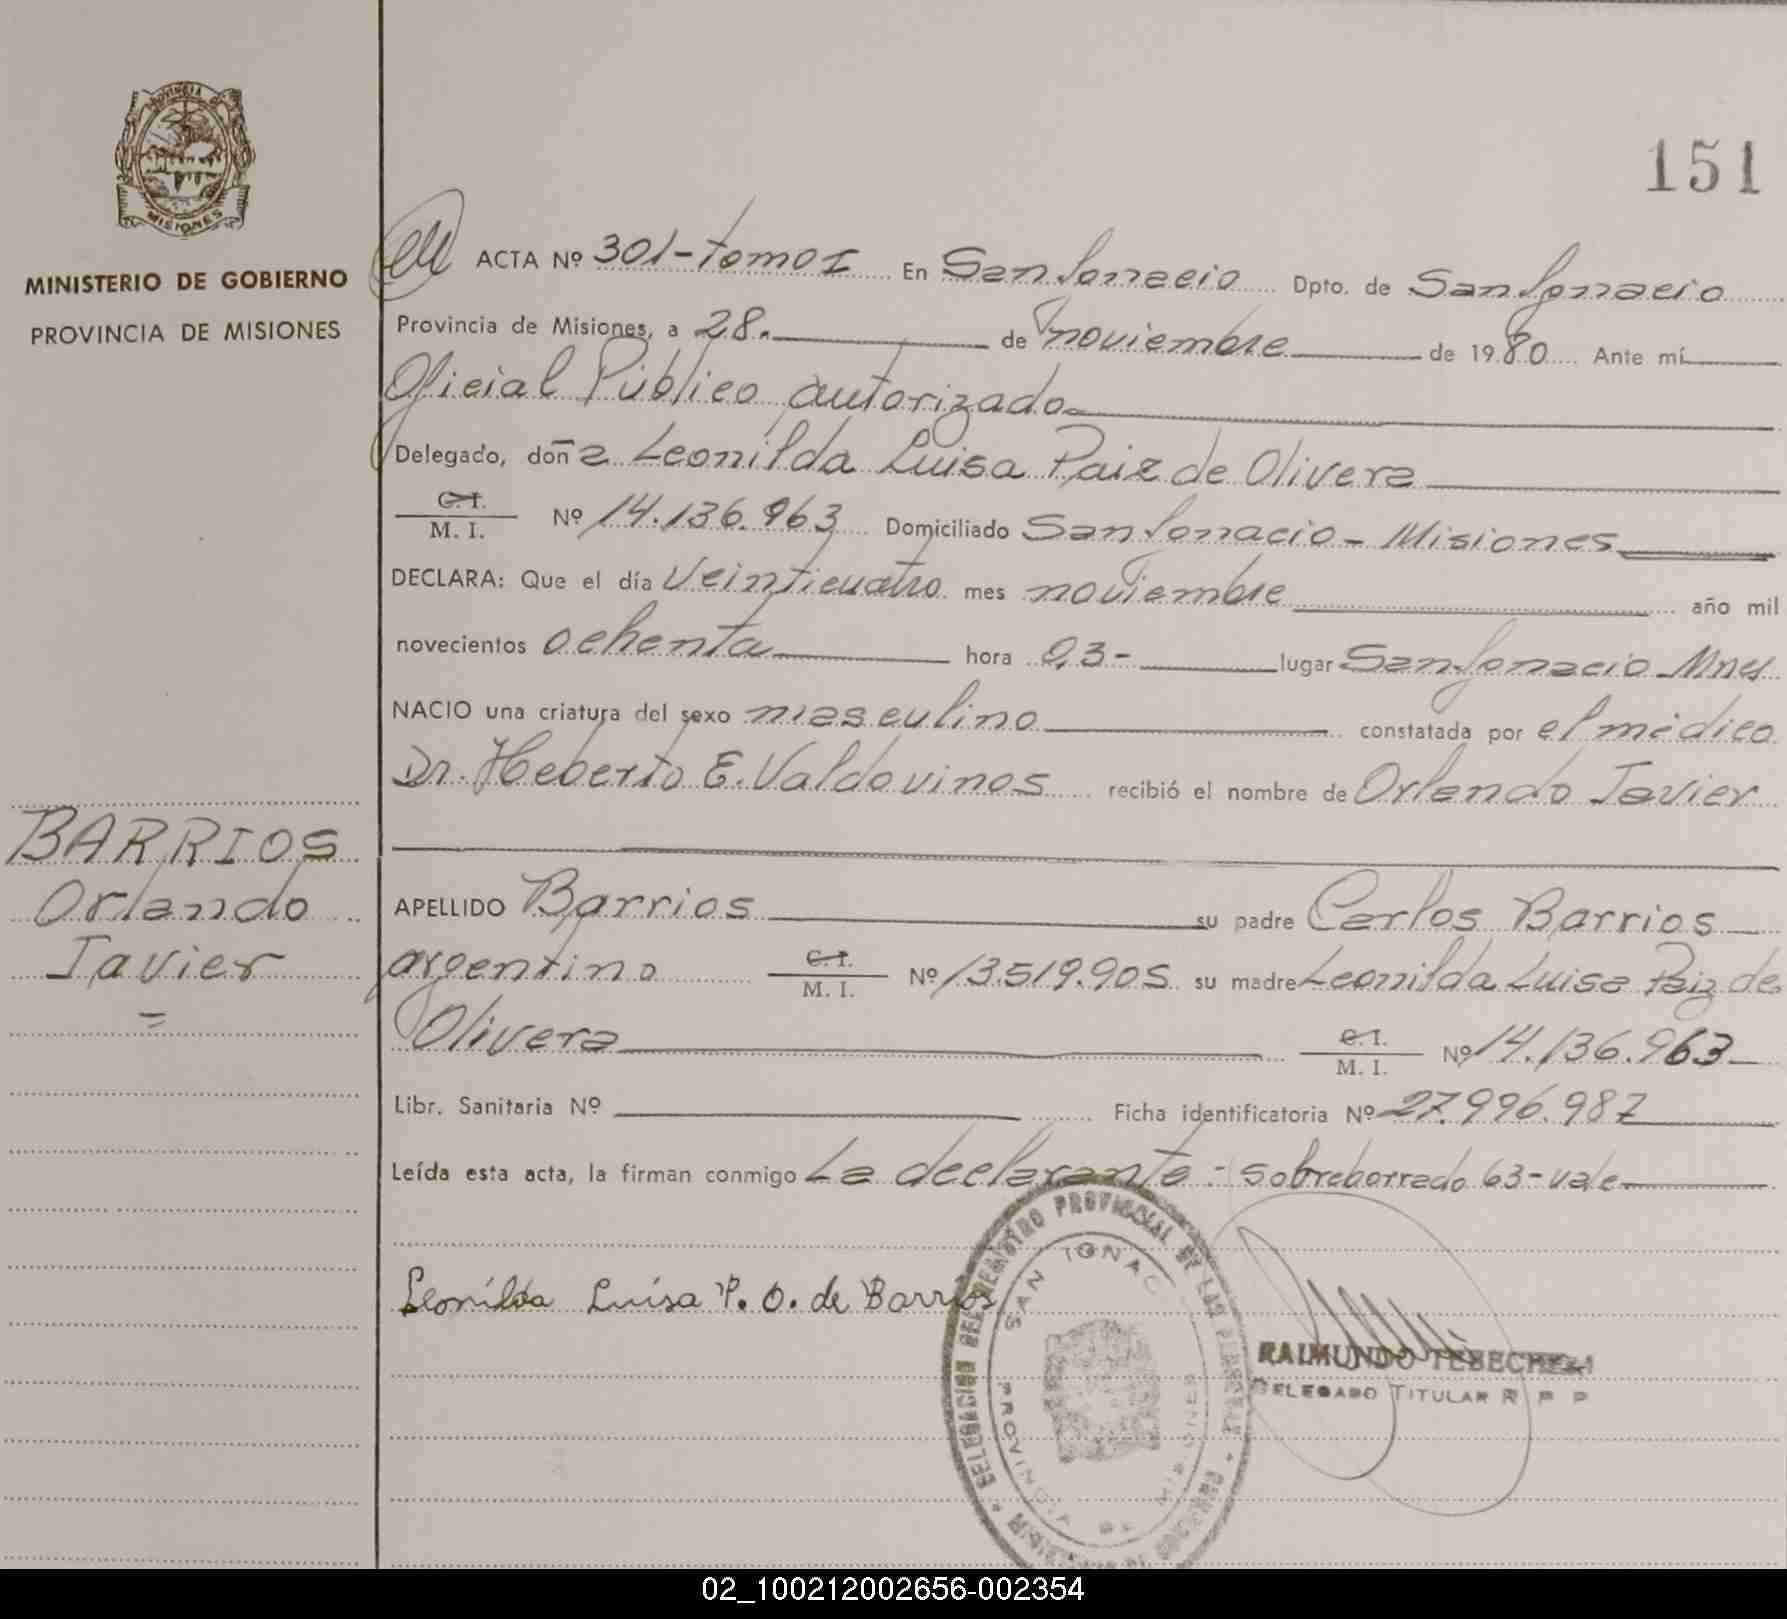 PROVINCIA DE
MISIONES
MINISTERIO DE GOBIERNO
PROVINCIA DE MISIONES
151
ACTA Nº 301-tomo I En San Ignacio Dpto. de San Ignacio
Provincia de Misiones, a 28. de noviembre de 1980 Ante mí
Oficial Público autorizado
Delegado, doña Leonilda Luisa Paiz de Olivera
C. I.
M. I. Nº 14.136.963 Domiciliado San Ignacio - Misiones
DECLARA: Que el día veinticuatro mes noviembre año mil
novecientos ochenta hora 03- lugar San Ignacio Mnes
NACIO una criatura del sexo masculino constatada por el médico
Dr. Heberto E. Valdovinos recibió el nombre de Orlando Javier
BARRIOS
Orlando
Javier
=
APELLIDO Barrios su padre Carlos Barrios
argentino C. I.
M. I. Nº 13.519.905 su madre Leonilda Luisa Paiz de
Olivera C. I.
M. I. Nº 14.136.963
Libr. Sanitaria Nº Ficha identificatoria Nº 27.996.987
Leída esta acta, la firman conmigo La declarante - sobreborrado 63-vale
Leonilda Luisa P. O. de Barrios
DELEGACION DEL REGISTRO PROVINCIAL DE LAS PERSONAS
SAN IGNAC
PROVINCIA DE MISIONES
RAIMUNDO
DELEGADO TITULAR R P P
02_100212002656-002354